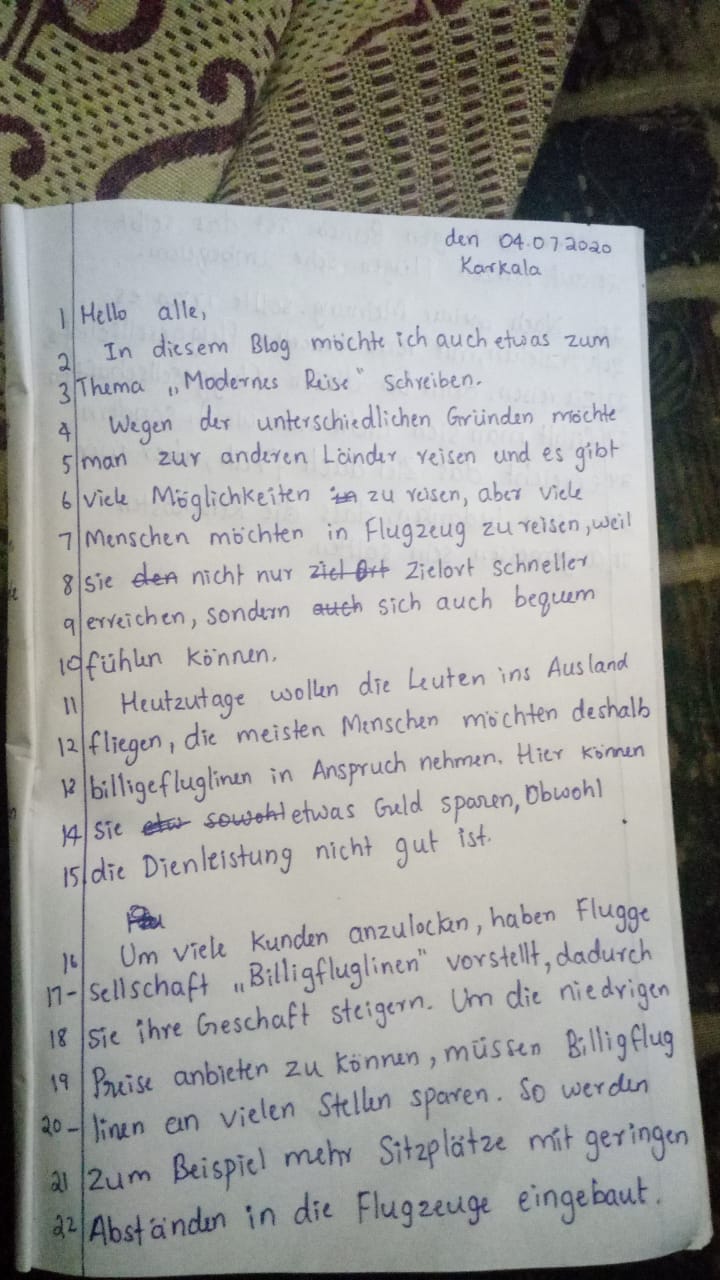 den 04.07.2020
Karkala
1 Hello alle,
2 In diesem Blog möchte ich auch etwas zum
3 Thema „Modernes Reise" schreiben.
4 Wegen der unterschiedlichen Gründen möchte
5 man zur anderen Länder reisen und es gibt
6 viele Möglichkeiten in zu reisen, aber viele
7 Menschen möchten in Flugzeug zu reisen, weil
8 sie den nicht nur ziel Ort Zielort schneller
9 erreichen, sondern auch sich auch bequem
10 fühlen können.
11 Heutzutage wollen die Leuten ins Ausland
12 fliegen, die meisten Menschen möchten deshalb
13 billigefluglinen in Anspruch nehmen. Hier können
14 sie etw sowohl etwas Geld sparen, Obwohl
15 die Dienleistung nicht gut ist.
16 Um viele Kunden anzulocken, haben Flugge
17- sellschaft „Billigfluglinen" vorstellt, dadurch
18 sie ihre Geschaft steigern. Um die niedrigen
19 Preise anbieten zu können, müssen Billigflug
20- linen an vielen Stellen sparen. So werden
21 zum Beispiel mehr Sitzplätze mit geringen
22 Abständen in die Flugzeuge eingebaut.